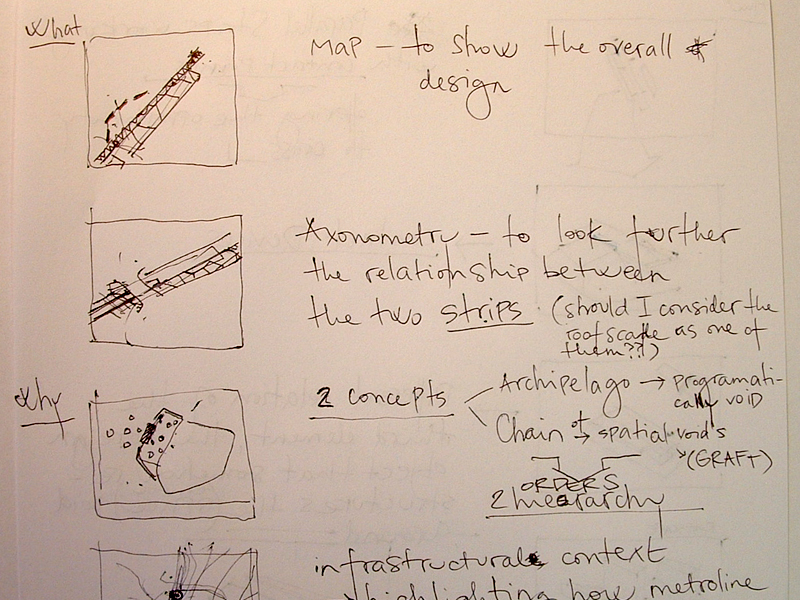 What
Map - to show the overall
design
Axonometry - to look further
the relationship between
the two strips (should I consider the
roofscape as one of
them??)
Why
2 concepts
Archipelago → programati-
cally void
Chain of → spatial void's
(GRAFT)
ORDERS
2 hierarchy
infrastructural context
highlighting how metroline